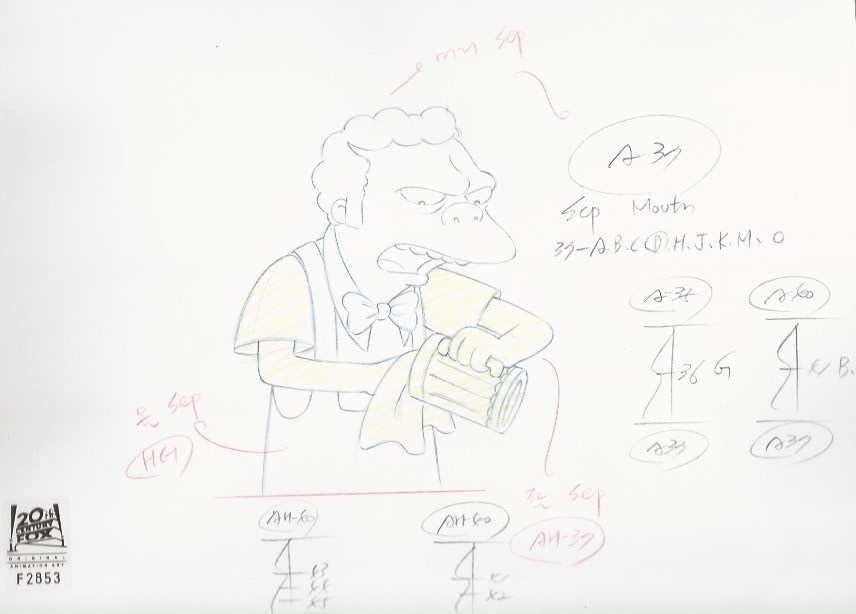 머리 Sep
A-37
Sep Mouth
37-A.B.C.D.H.J.K.M.O
A-35
A-40
36 G
B.
A-37
A-37
몸 Sep
HG1
팔 Sep
AH-37
AH-40
AH-40
43
20th
CENTURY
FOX
ORIGINAL
ANIMATION ART
F2853